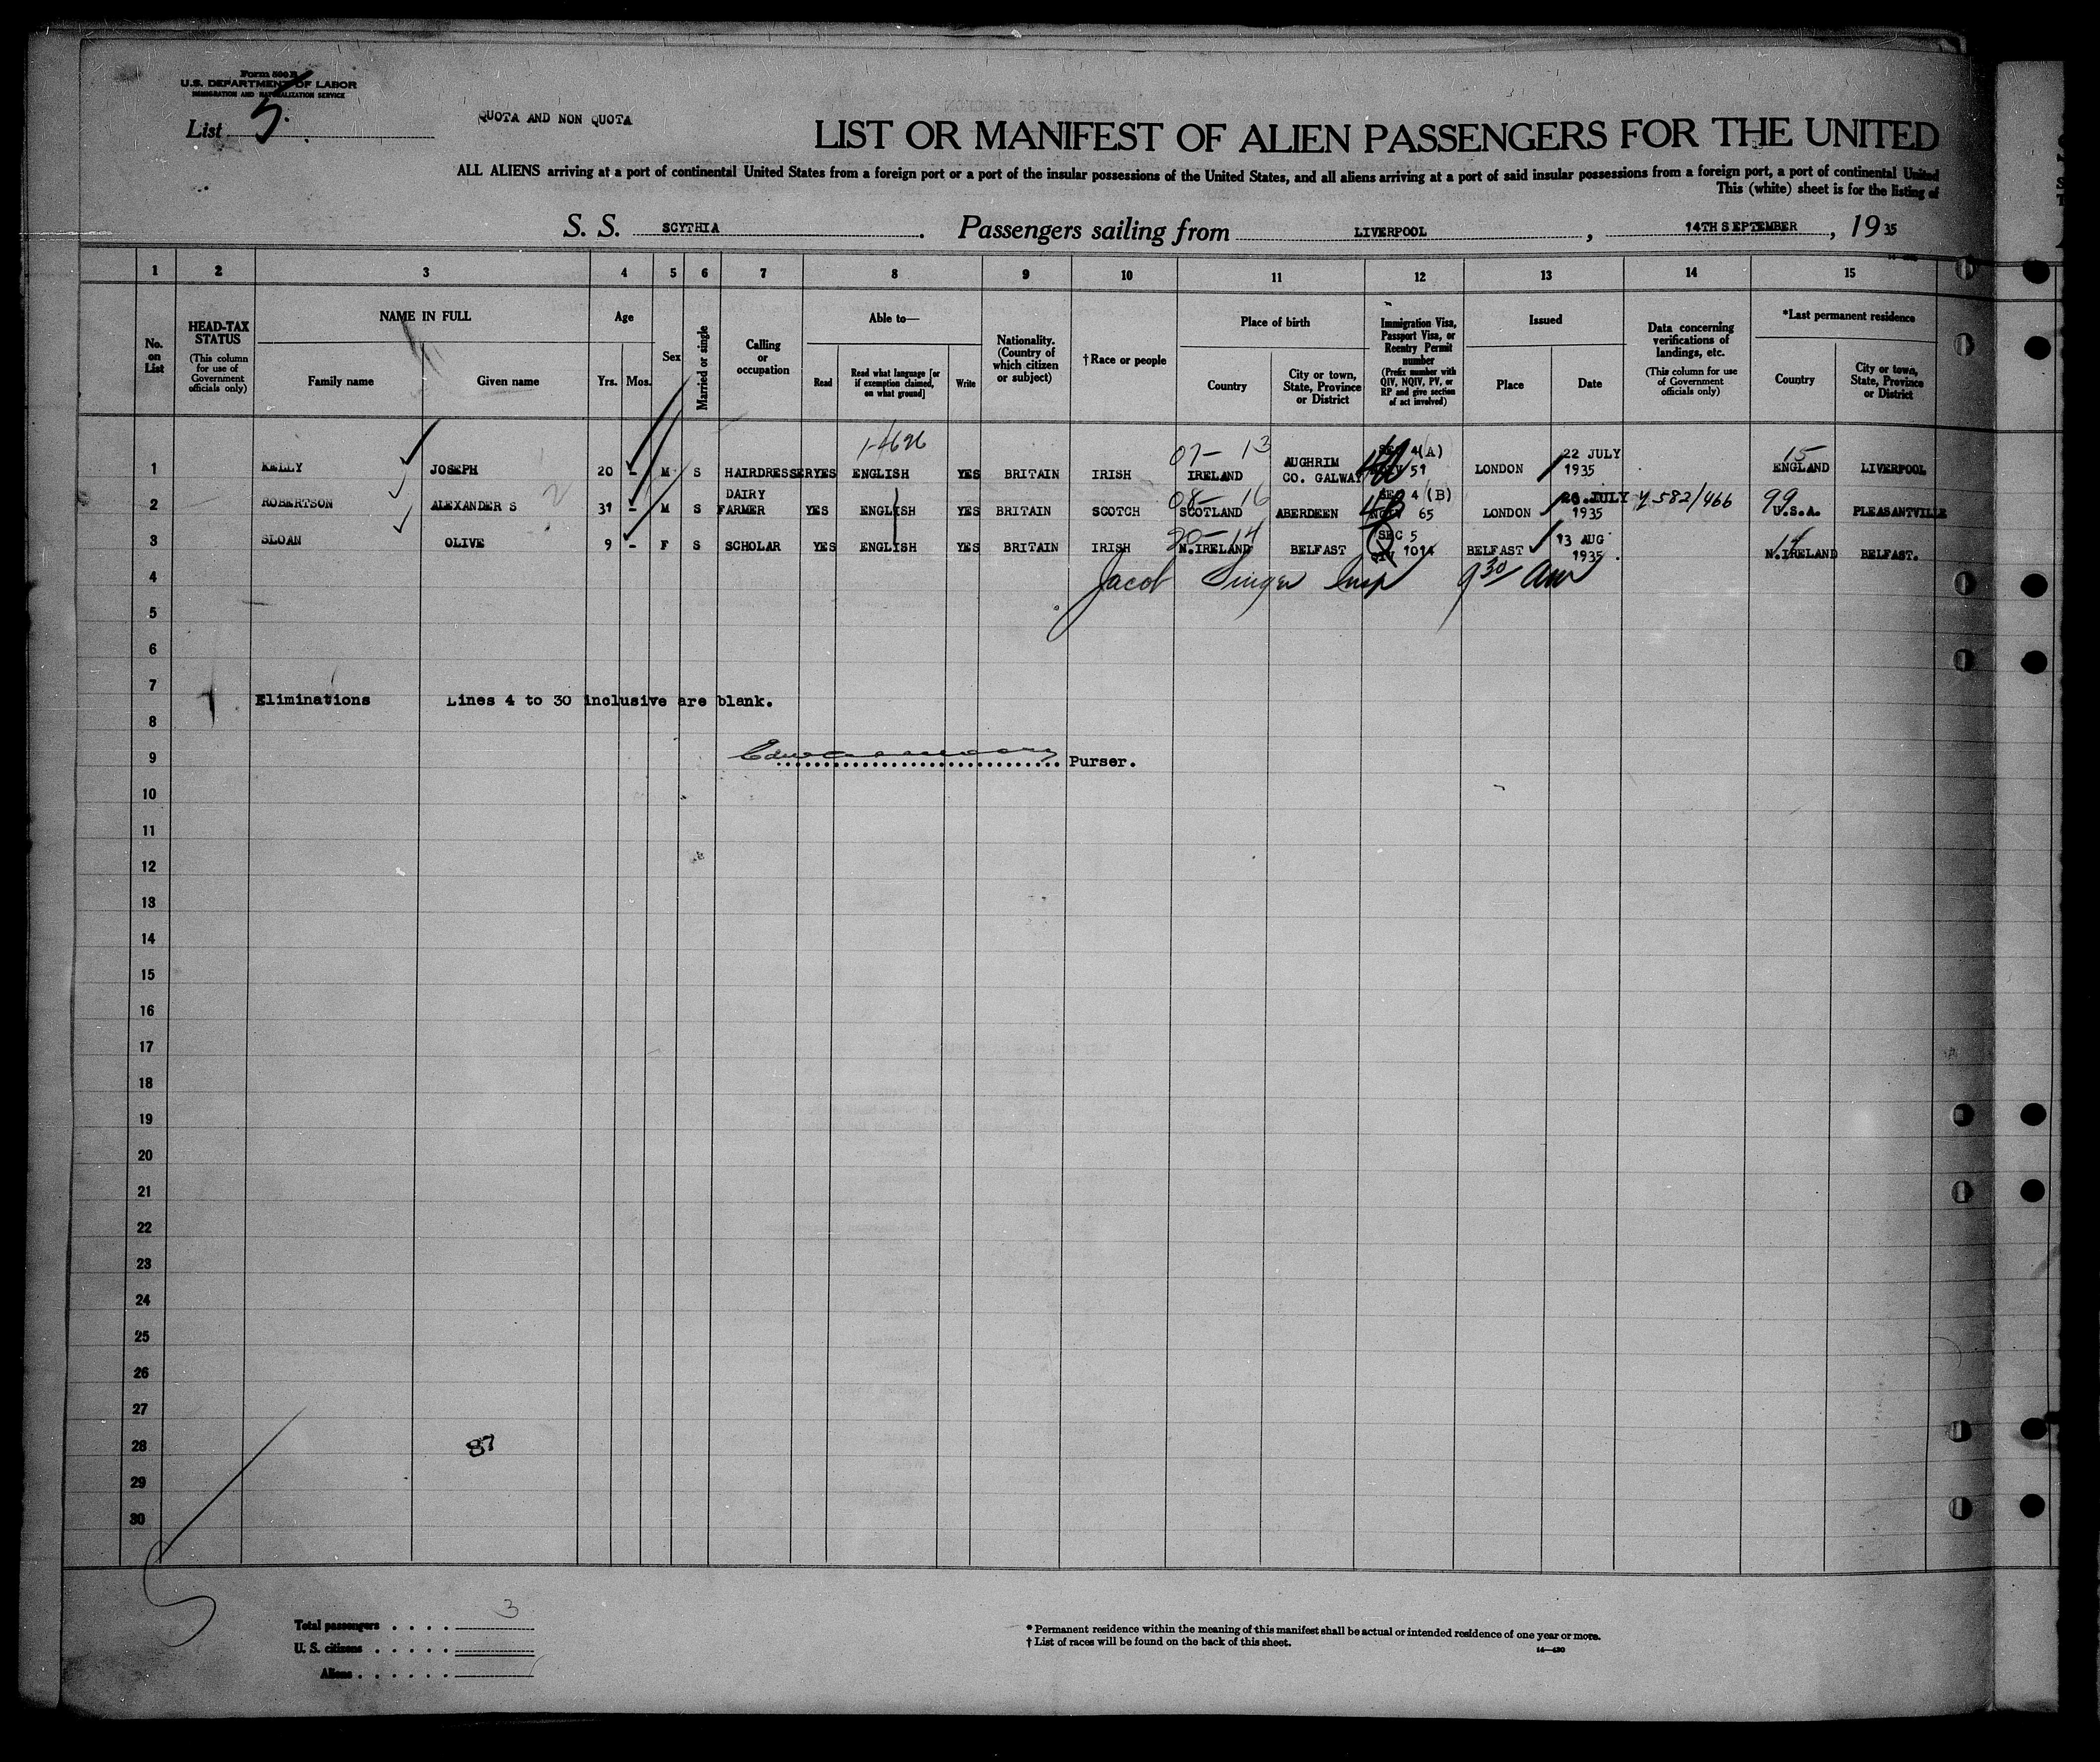 Form 500 B
U.S. DEPARTMENT OF LABOR
IMMIGRATION AND NATURALIZATION SERVICE
List 5.
QUOTA AND NON QUOTA
LIST OR MANIFEST OF ALIEN PASSENGERS FOR THE UNITED
ALL ALIENS arriving at a port of continental United States from a foreign port or a port of the insular possessions of the United States, and all aliens arriving at a port of said insular possessions from a foreign port, a port of continental United
This (white) sheet is for the listing of
S. S. SCYTHIA. Passengers sailing from LIVERPOOL, 14TH SEPTEMBER, 1935
1 2 3 4 5 6 7 8 9 10 11 12 13 14 15
No. on List
HEAD-TAX STATUS
(This column for use of Government officials only)
NAME IN FULL
Family name
Given name
Age
Yrs. Mos.
Sex
Married or single
Calling or occupation
Able to—
Read
Read what language [or if exemption claimed, on what ground]
Write
Nationality. (Country of which citizen or subject)
†Race or people
Place of birth
Country
City or town, State, Province or District
Immigration Visa, Passport Visa, or Reentry Permit number
(Prefix number with QIV, NQIV, PV, or RP and give section of act involved)
Issued
Place
Date
Data concerning verifications of landings, etc.
(This column for use of Government officials only)
*Last permanent residence
Country
City or town, State, Province or District
1-4626
07- 13 SEC 4(A) 22 JULY 15
1 KELLY JOSEPH 20 - M S HAIRDRESSER YES ENGLISH YES BRITAIN IRISH IRELAND AUGHRIM CO. GALWAY 51 LONDON 1935 ENGLAND LIVERPOOL
DAIRY 08- 16 SEC 4 (B) 26 JULY 99
2 ROBERTSON ALEXANDER S 31 - M S FARMER YES ENGLISH YES BRITAIN SCOTCH SCOTLAND ABERDEEN 65 LONDON 1935 582/466 U.S.A. PLEASANTVILLE
20- 14 SEC 5 13 AUG 14
3 SLOAN OLIVE 9 - F S SCHOLAR YES ENGLISH YES BRITAIN IRISH N.IRELAND BELFAST QIV 1014 BELFAST 1935. N.IRELAND BELFAST.
4
Jacob Singer Insp 9 30/ am
5
6
7
Eliminations Lines 4 to 30 inclusive are blank.
8
9
Purser.
10
11
12
13
14
15
16
17
18
19
20
21
22
23
24
25
26
27
28 87
29
30
Total passengers . . . . 3
U. S. citizens . . . . .
Aliens . . . . . .
* Permanent residence within the meaning of this manifest shall be actual or intended residence of one year or more.
† List of races will be found on the back of this sheet.
14—420